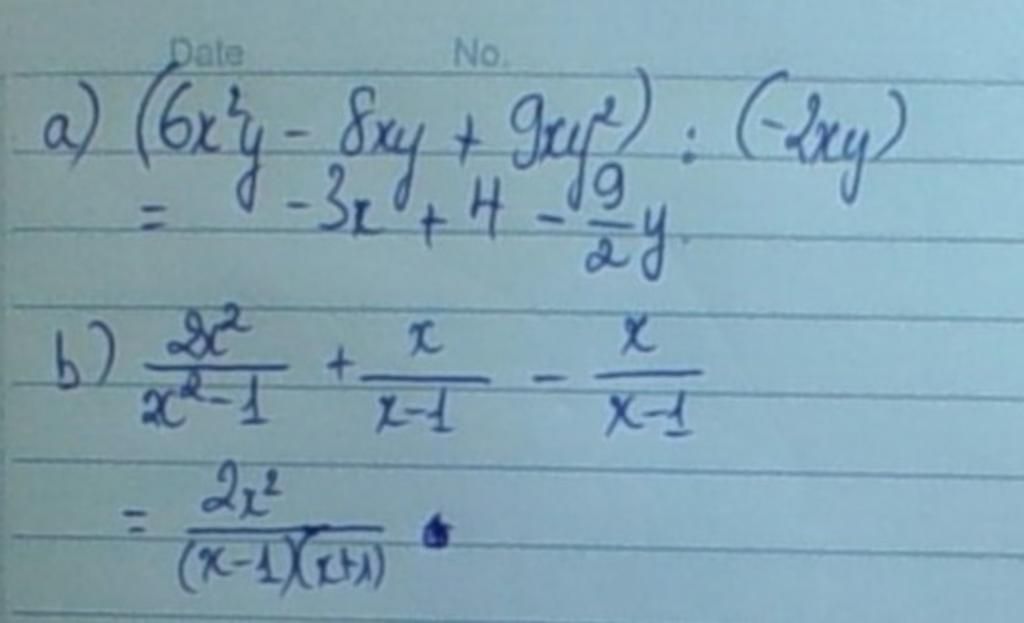 Date No.
a) (6x²y - 8xy + 9xy²) : (-2xy)
= -3x + 4 - \frac{9}{2}y
b) \frac{2x²}{x²-1} + \frac{x}{x-1} - \frac{x}{x-1}
= \frac{2x²}{(x-1)(x+1)}